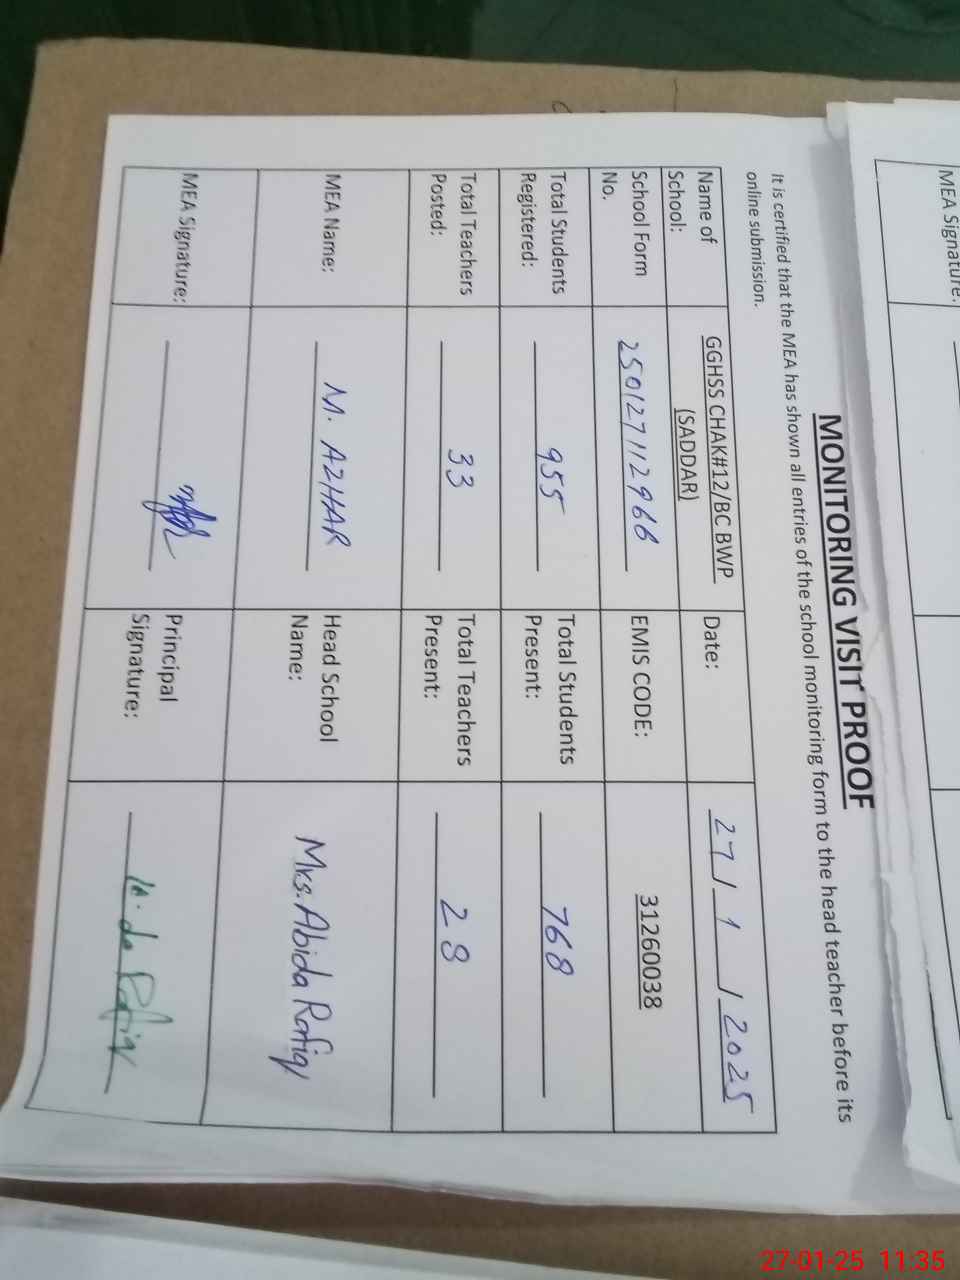 MONITORING VISIT PROOF
It is certified that the MEA has shown all entries of the school monitoring form to the head teacher before its
online submission.
Name of
School:
GGHSS CHAK#12/BC BWP
(SADDAR)
Date:
27 / 1 / 2025
School Form
No.
250127112966
EMIS CODE:
31260038
Total Students
Registered:
955
Total Students
Present:
768
Total Teachers
Posted:
33
Total Teachers
Present:
28
MEA Name:
M. AZHAR
Head School
Name:
Mrs. Abida Rafiq
MEA Signature:
Principal
Signature:
Rafiq
MEA Signature:
27-01-25 11:35